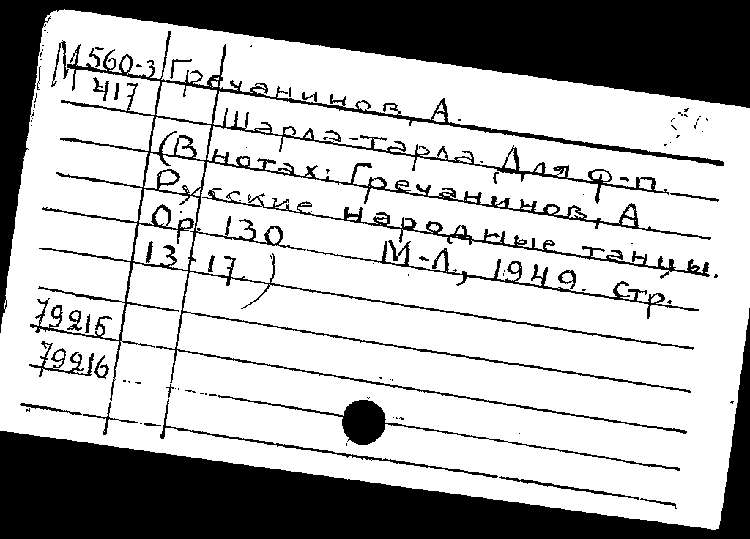 М 560-3 Гречанинов, А.
417
Шарла-тарла. Для ф-п.
(В нотах: Гречанинов, А.
Русские народные танцы.
Op. 130 М-Л., 1949. стр.
13-17.)
79215
79216